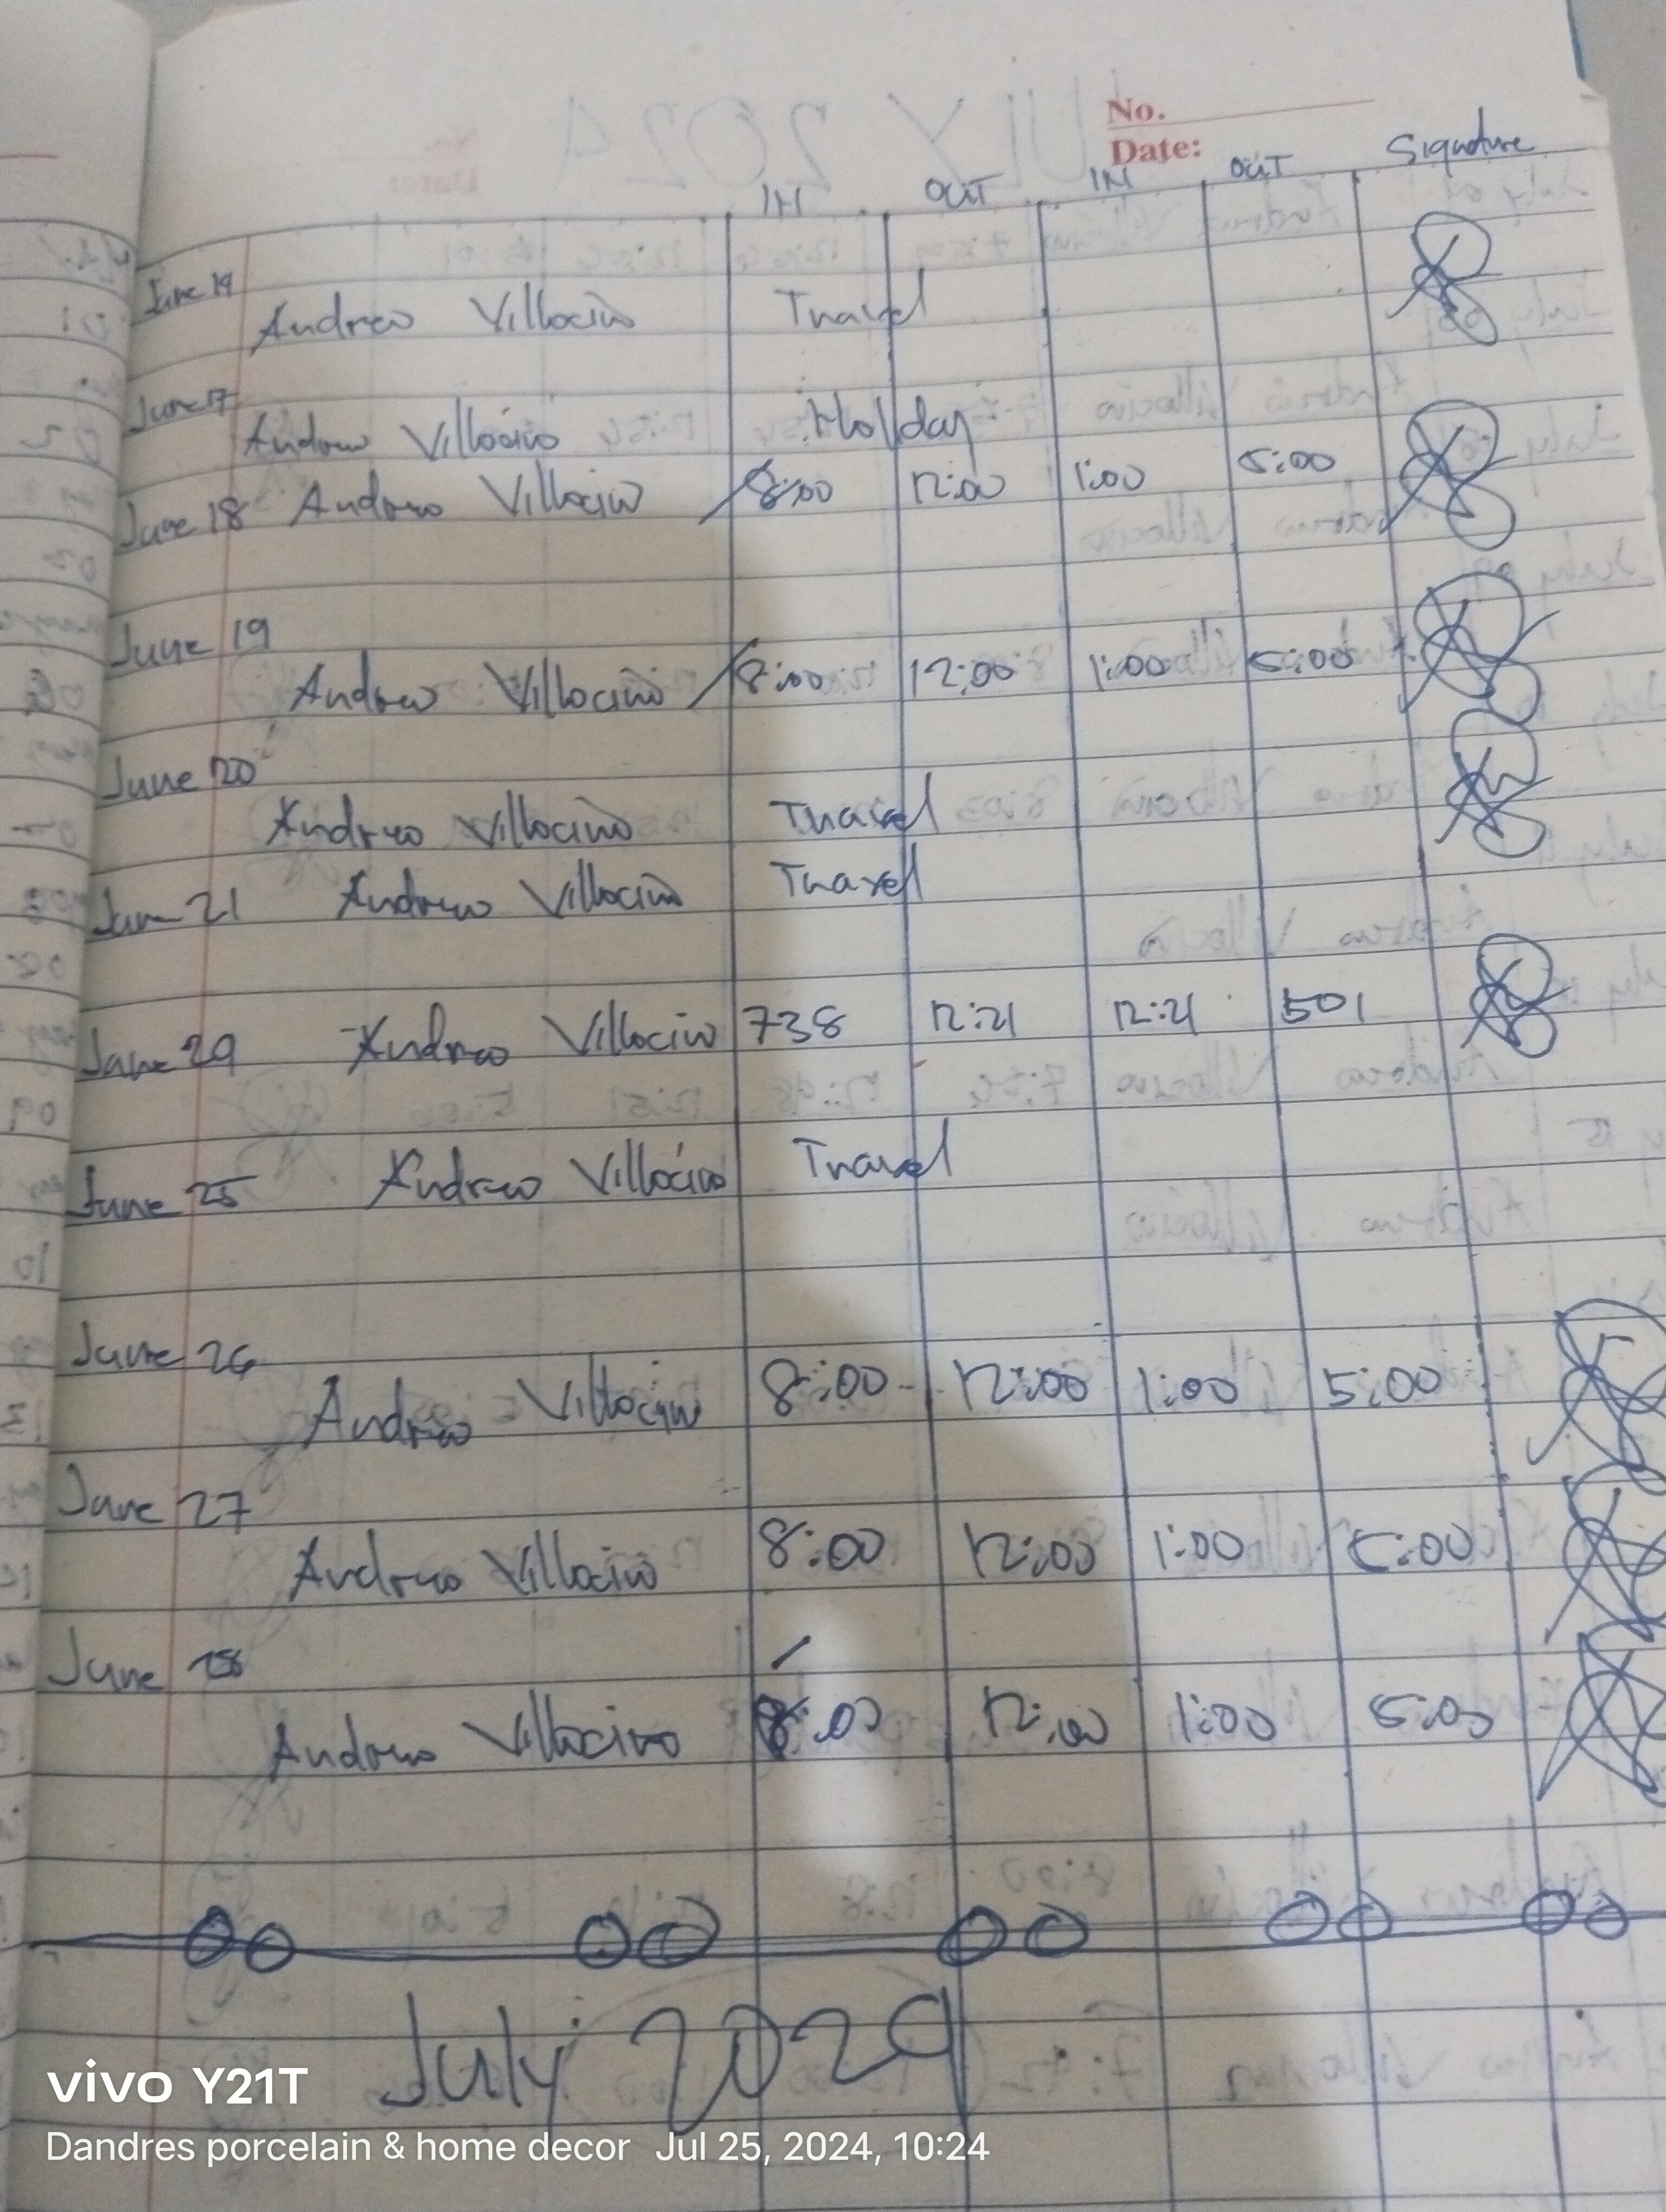 No.
Date:
IN OUT IN OUT Signature
June 14
Andrew Villacino Travel
June 17
Andrew Villacino Holiday
June 18 Andrew Villacino 8:00 12:00 1:00 5:00
June 19
Andrew Villacino 8:00 12:00 1:00 5:00
June 20
Andrew Villacino Travel
June 21 Andrew Villacino Travel
June 24 Andrew Villacino 738 12:21 12:21 501
June 25 Andrew Villacino Travel
June 26
Andrew Villacino 8:00 12:00 1:00 5:00
June 27
Andrew Villacino 8:00 12:00 1:00 5:00
June 28
Andrew Villacino 8:00 12:00 1:00 5:00
July 2024
vivo Y21T
Dandres porcelain & home decor Jul 25, 2024, 10:24